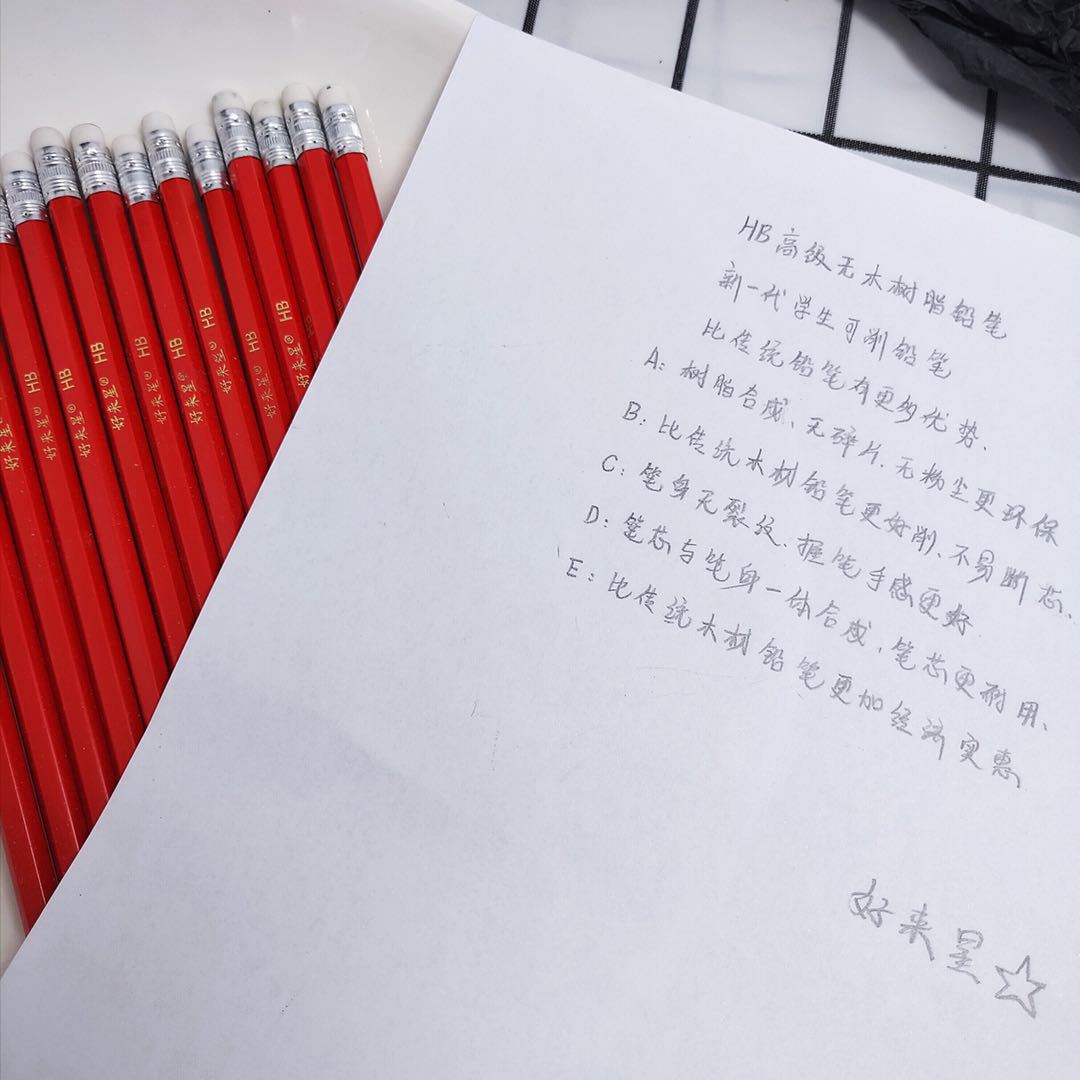 HB高级无木树脂铅笔
新一代学生可削铅笔
比传统铅笔有更多优势.
A: 树脂合成、无碎片.无粉尘更环保
B: 比传统木树铅笔更好削、不易断芯、
C: 笔身无裂纹、握笔手感更好
D: 笔芯与笔身一体合成,笔芯更耐用、
E: 比传统木树铅笔更加经济实惠
好来星☆
好来星
好来星® HB
好来星® HB
好来星® HB
好来星® HB
好来星® HB
好来星® HB
好来星® HB
好来星® HB